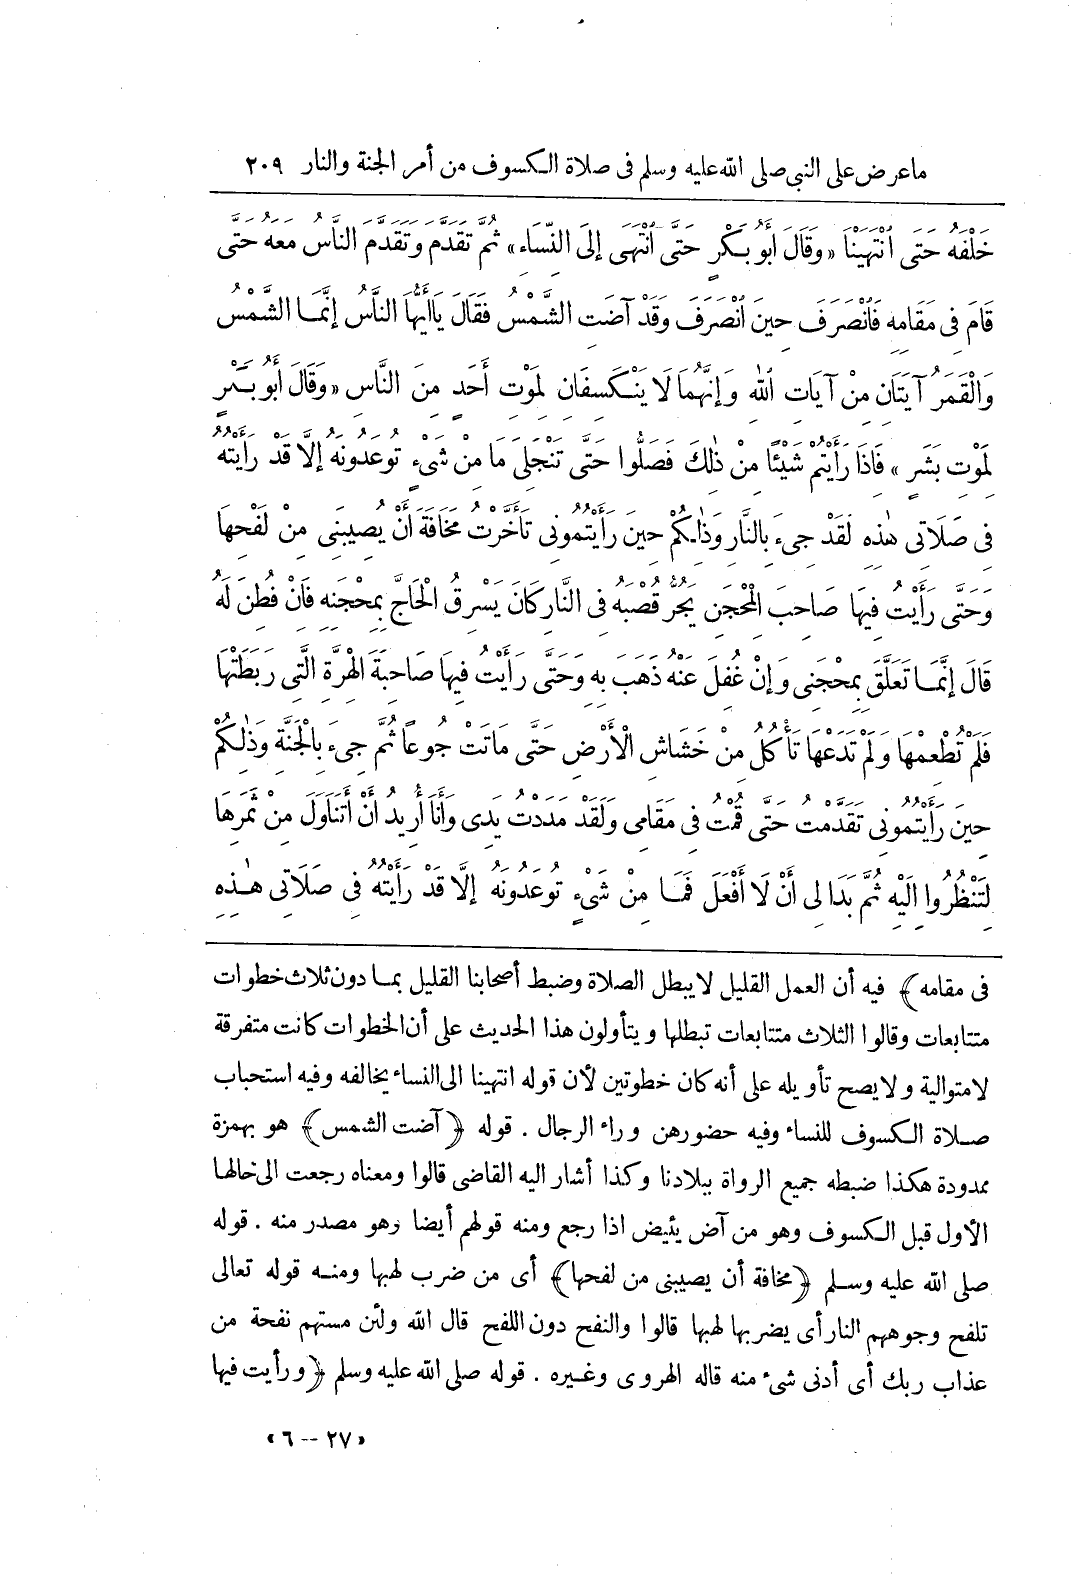 ماعرض على النبى صلى الله عليه وسلم فى صلاة الكسوف من أمر الجنة والنار ٢٠٩
خَلْفَهُ حَتَّى انْتَهَيْنَا «وَقَالَ أَبُو بَكْرٍ حَتَّى انْتَهَى إِلَى النِّسَاءِ» ثُمَّ تَقَدَّمَ وَتَقَدَّمَ النَّاسُ مَعَهُ حَتَّى
قَامَ فِى مَقَامِهِ فَانْصَرَفَ حِينَ انْصَرَفَ وَقَدْ آضَتِ الشَّمْسُ فَقَالَ يَاأَيُّهَا النَّاسُ إِنَّمَا الشَّمْسُ
وَالْقَمَرُ آيَتَانِ مِنْ آيَاتِ اللهِ وَإِنَّهُمَا لَا يَنْكَسِفَانِ لِمَوْتِ أَحَدٍ مِنَ النَّاسِ «وَقَالَ أَبُو بَكْرٍ
لِمَوْتِ بَشَرٍ» فَاذَا رَأَيْتُمْ شَيْئًا مِنْ ذٰلِكَ فَصَلُّوا حَتَّى تَنْجَلِىَ مَا مِنْ شَىْءٍ تُوعَدُونَهُ إِلَّا قَدْ رَأَيْتُهُ
فِى صَلَاتِى هٰذِهِ لَقَدْ جِىءَ بِالنَّارِ وَذٰلِكُمْ حِينَ رَأَيْتُمُونِى تَأَخَّرْتُ مَخَافَةَ أَنْ يُصِيبَنِى مِنْ لَفْحِهَا
وَحَتَّى رَأَيْتُ فِيهَا صَاحِبَ الْمِحْجَنِ يَجُرُّ قُصْبَهُ فِى النَّارِ كَانَ يَسْرِقُ الْحَاجَّ بِمِحْجَنِهِ فَانْ فُطِنَ لَهُ
قَالَ إِنَّمَا تَعَلَّقَ بِمِحْجَنِى وَإِنْ غُفِلَ عَنْهُ ذَهَبَ بِهِ وَحَتَّى رَأَيْتُ فِيهَا صَاحِبَةَ الْهِرَّةِ الَّتِى رَبَطَتْهَا
فَلَمْ تُطْعِمْهَا وَلَمْ تَدَعْهَا تَأْكُلُ مِنْ خَشَاشِ الْأَرْضِ حَتَّى مَاتَتْ جُوعًا ثُمَّ جِىءَ بِالْجَنَّةِ وَذٰلِكُمْ
حِينَ رَأَيْتُمُونِى تَقَدَّمْتُ حَتَّى قُمْتُ فِى مَقَامِى وَلَقَدْ مَدَدْتُ يَدِى وَأَنَا أُرِيدُ أَنْ أَتَنَاوَلَ مِنْ ثَمَرِهَا
لِتَنْظُرُوا الَيْهِ ثُمَّ بَدَا لِى أَنْ لَا أَفْعَلَ فَمَا مِنْ شَىْءٍ تُوعَدُونَهُ إِلَّا قَدْ رَأَيْتُهُ فِى صَلَاتِى هٰذِهِ
فى مقامه﴾ فيه أن العمل القليل لايبطل الصلاة وضبط أصحابنا القليل بما دون ثلاث خطوات
متتابعات وقالوا الثلاث متتابعات تبطلها ويتأولون هذا الحديث على أن الخطوات كانت متفرقة
لامتوالية ولايصح تأويله على أنه كان خطوتين لأن قوله انتهينا الى النساء يخالفه وفيه استحباب
صلاة الكسوف للنساء وفيه حضورهن وراء الرجال . قوله ﴿آضت الشمس﴾ هو بهمزة
ممدودة هكذا ضبطه جميع الرواة ببلادنا وكذا أشار اليه القاضى قالوا ومعناه رجعت الى حالها
الأول قبل الكسوف وهو من آض يئيض اذا رجع ومنه قولهم أيضا وهو مصدر منه . قوله
صلى الله عليه وسلم ﴿مخافة أن يصيبنى من لفحها﴾ أى من ضرب لهبها ومنه قوله تعالى
تلفح وجوههم النار أى يضربها لهبها قالوا والنفح دون اللفح قال الله ولئن مستهم نفحة من
عذاب ربك أى أدنى شىء منه قاله الهروى وغيره . قوله صلى الله عليه وسلم ﴿ورأيت فيها
«٢٧ -- ٦»